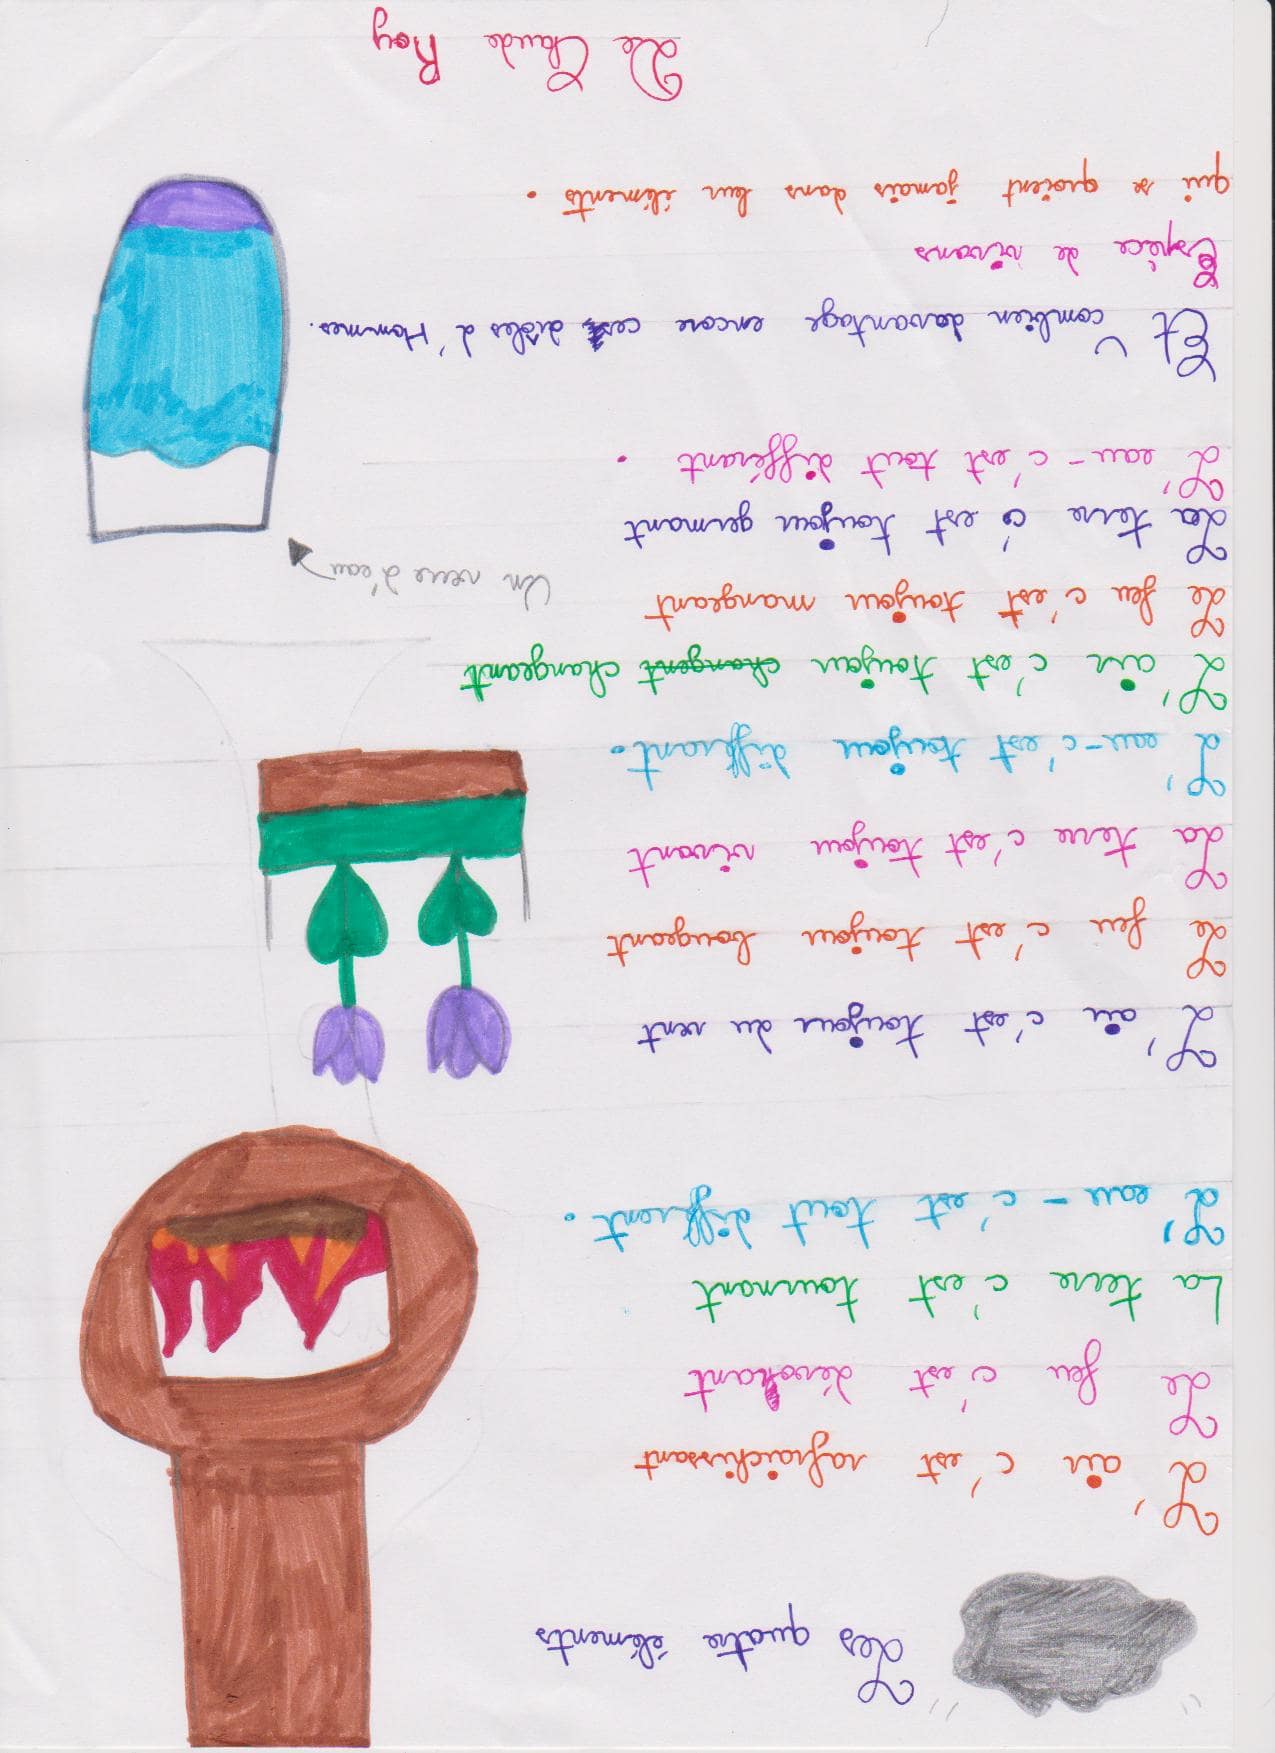 Les quatre éléments
L'air c'est rafraichissant
Le feu c'est dévorant
La terre c'est tournant
L'eau - c'est tout différant.
L'air c'est toujour du vent
Le feu c'est toujour bougeant
La terre c'est toujour vivant
L'eau - c'est toujour différant.
L'air c'est toujour changent changeant
Le feu c'est toujour mangeant
La terre c'est toujour germant
L'eau - c'est tout différant.
Un verre d'eau
Et combien davantage encore ces drôles d'Hommes.
Espèce de vivans
qui se quoient jamais dans leur éléments.
De Claude Roy